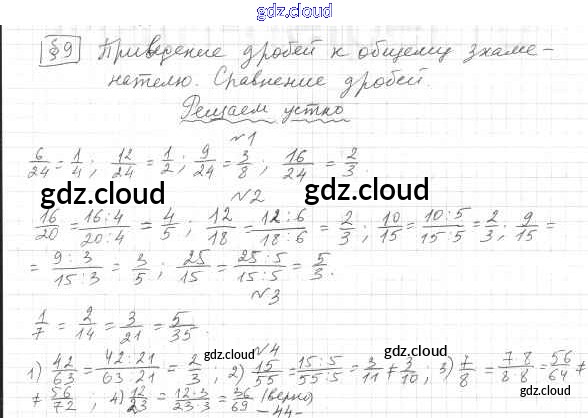 gdz.cloud
§9 Приведение дробей к общему знаме-
нателю. Сравнение дробей.
Решаем устно
№1
6/24 = 1/4; 12/24 = 1/2; 9/24 = 3/8; 16/24 = 2/3.
gdz.cloud gdz.cloud
№2
16/20 = 16:4/20:4 = 4/5; 12/18 = 12:6/18:6 = 2/3; 10/15 = 10:5/15:5 = 2/3; 9/15 =
= 9:3/15:3 = 3/5; 25/15 = 25:5/15:5 = 5/3.
№3
1/7 = 2/14 = 3/21 = 5/35.
gdz.cloud gdz.cloud
№4
1) 42/63 = 42:21/63:21 = 2/3; 2) 15/55 = 15:5/55:5 = 3/11 ≠ 3/10; 3) 7/8 = 7·8/8·8 = 56/64 ≠
≠ 56/72; 4) 12/23 = 12·3/23·3 = 36/69 (верно)
gdz.cloud gdz.cloud
-44-